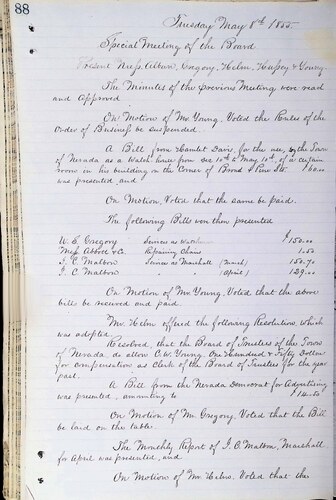 88
Tuesday May 8th 1855.
Special Meeting of the Board
Present Mess. Alban, Gregory, Helm, Hussey & Young.
The Minutes of the previous Meeting were read
and Approved
On Motion of Mr Young. Voted the Rules of the
Order of Business be suspended.
A Bill from Hamlet Davis, for the use, by the Town
of Nevada as a Watch house from Dec 10th to May 10th, of a certain
room in his building on the Corner of Broad & Pine Sts
was presented, and
On Motion, Voted that the same be paid.
The following Bills were then presented
W. E. Gregory Services as $150.00
Mess Abbott & Co. Repairing Chairs
I. C. Malbon Services as Marshall (March) 150.70
I. C. Malbon (April) 129.00
On Motion of Mr Young, Voted that the above
bills be received and paid.
Mr. Helm offered the following Resolution, which
was adopted.
Resolved, that the Board of Trustees of the Town
of Nevada do allow C. W. Young, One Hundred & Fifty Dollars
for compensation, as Clerk of the Board of Trustees for the year
past.
A Bill from the Nevada Democrat for Advertising
was presented, amounting to
On Motion of Mr. Gregory, Voted that the Bill
be laid on the table.
The Monthly Report of I. C. Malbon, Marshall
for April was presented, and
On Motion of Mr. Helm, Voted that the